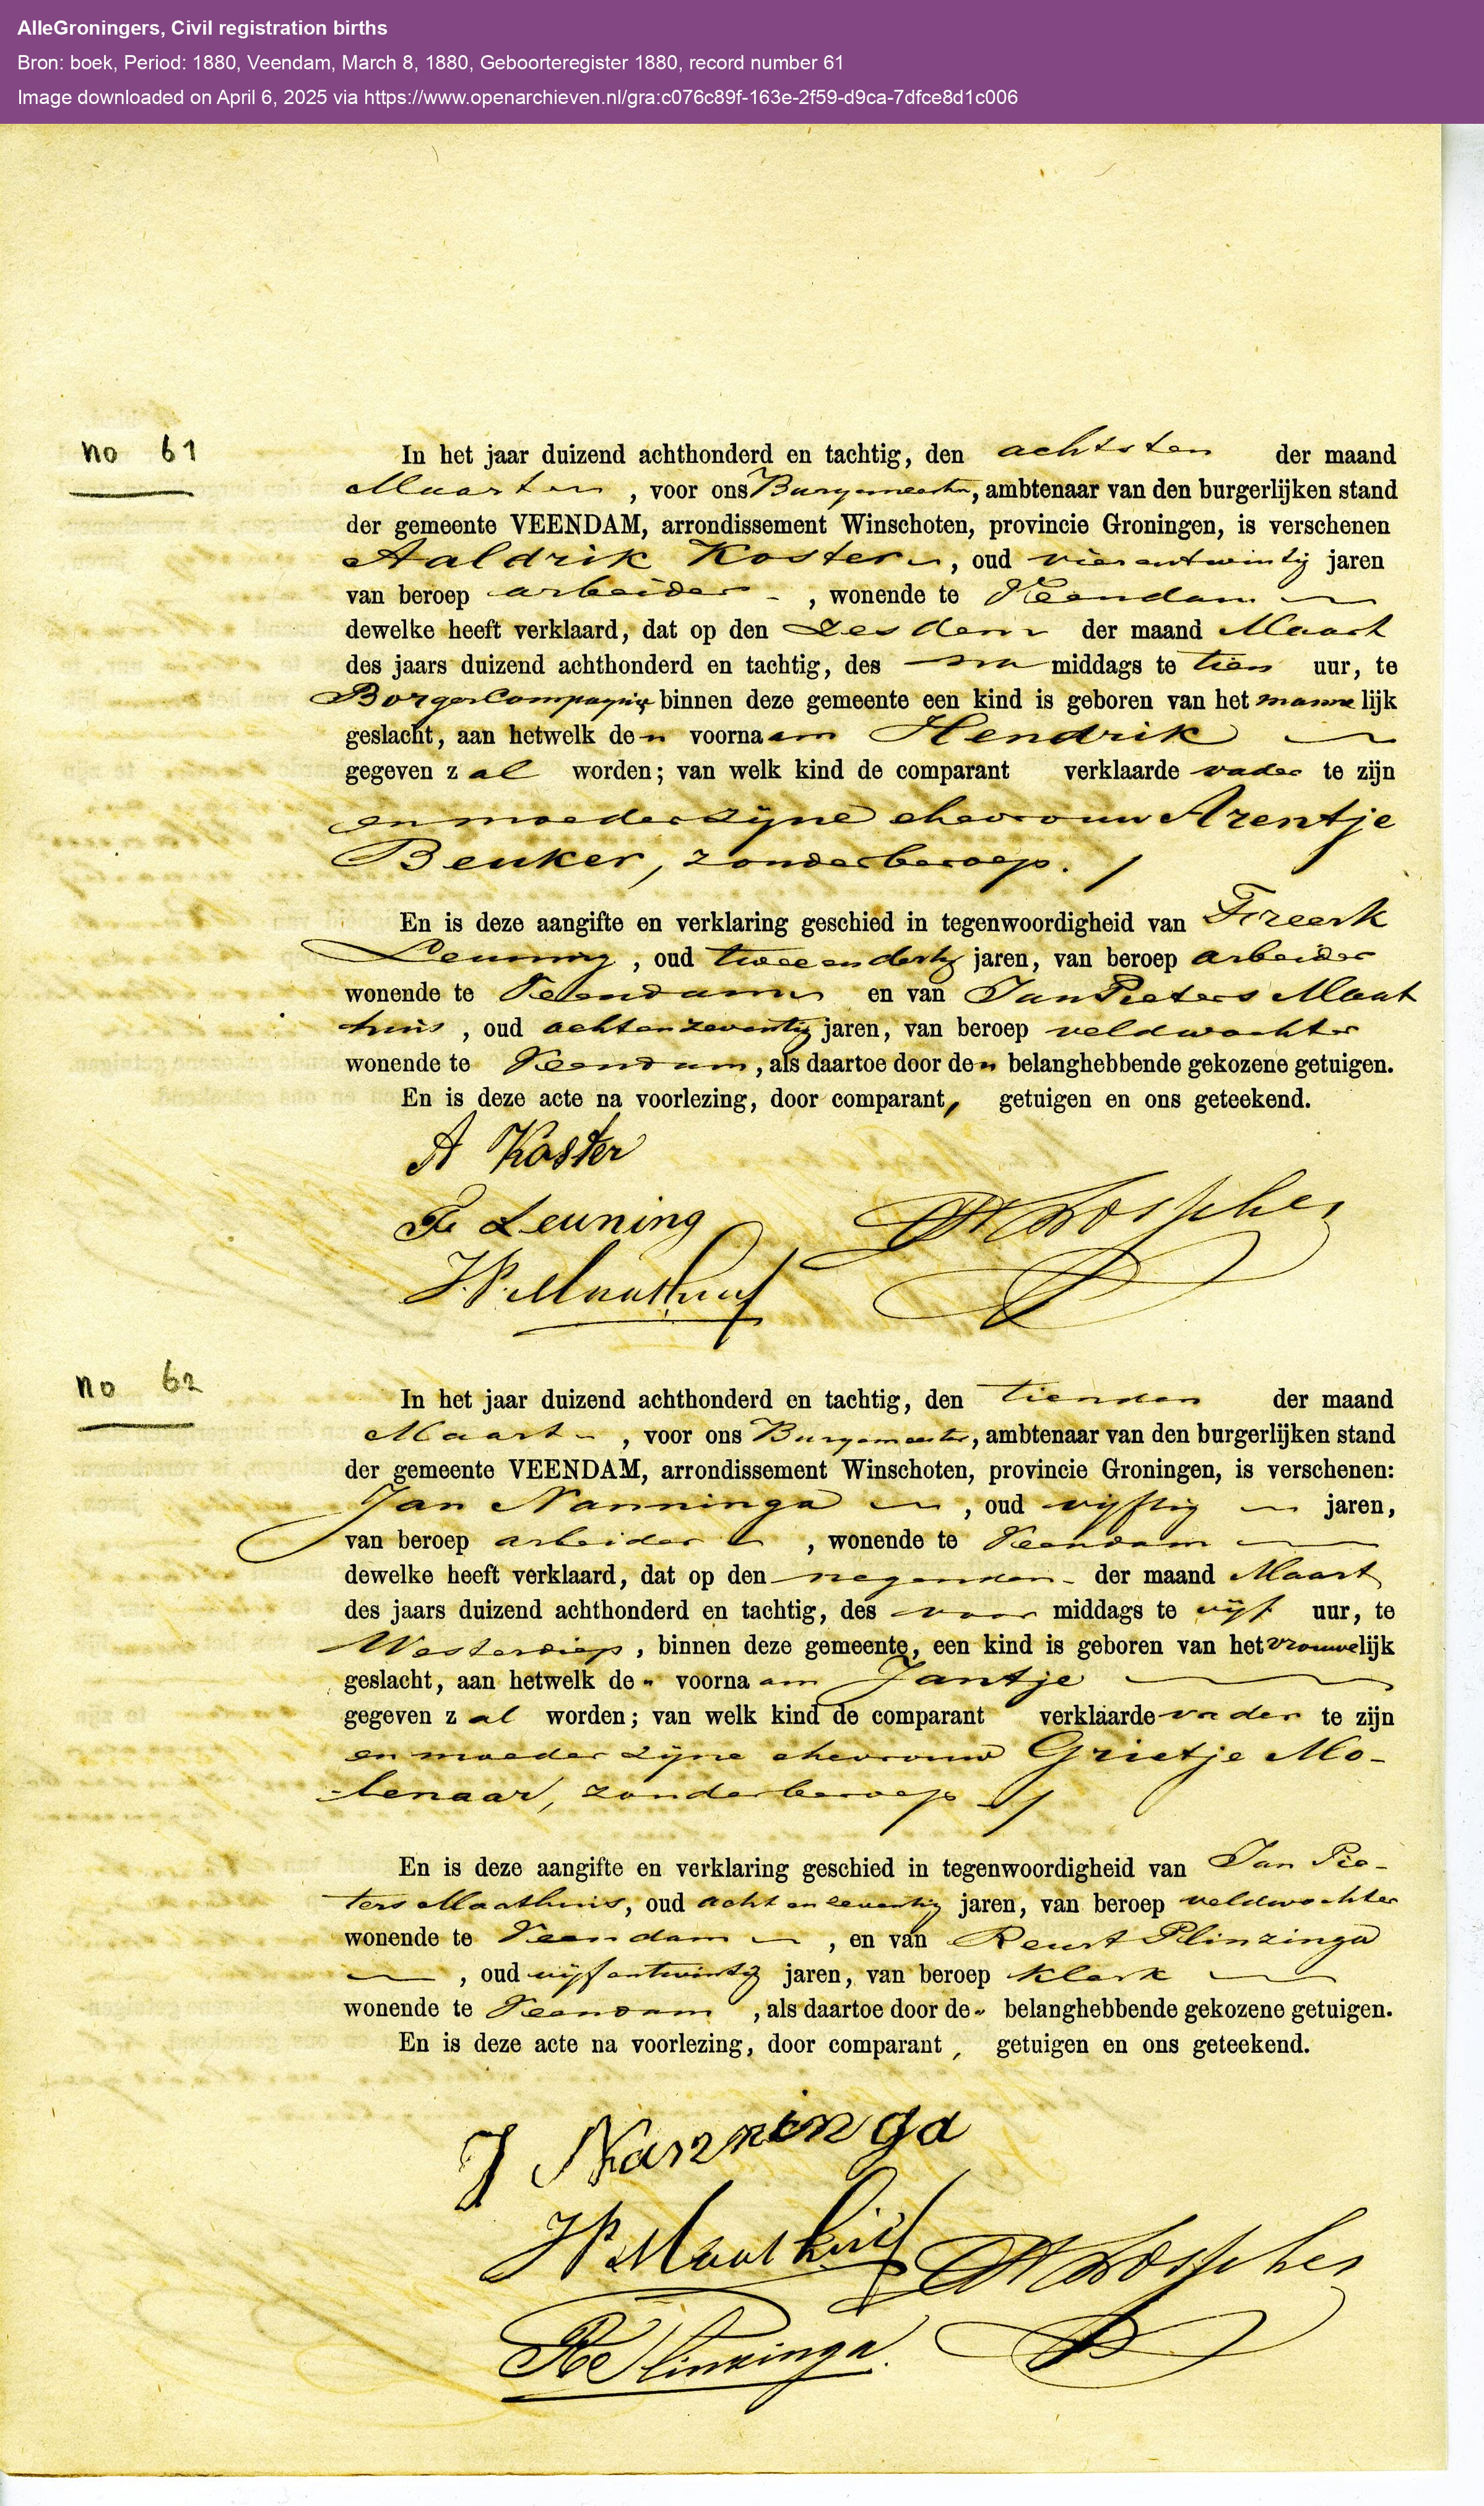 AlleGroningers, Civil registration births
Bron: boek, Period: 1880, Veendam, March 8, 1880, Geboorteregister 1880, record number 61
Image downloaded on April 6, 2025 via https://www.openarchieven.nl/gra:c076c89f-163e-2f59-d9ca-7dfce8d1c006
no 61
In het jaar duizend achthonderd en tachtig, den achtsten der maand
Maart, voor ons Burgemeester, ambtenaar van den burgerlijken stand
der gemeente VEENDAM, arrondissement Winschoten, provincie Groningen, is verschenen
Aaldrik Koster, oud vierentwintig jaren
van beroep arbeider, wonende te Veendam
dewelke heeft verklaard, dat op den zesden der maand Maart
des jaars duizend achthonderd en tachtig, des na middags te tien uur, te
Borgercompagnie binnen deze gemeente een kind is geboren van het mannelijk
geslacht, aan hetwelk den voornaam Hendrik
gegeven zal worden; van welk kind de comparant verklaarde vader te zijn
en moeder zijne ehevrouw Arentje
Beuker, zonder beroep.
En is deze aangifte en verklaring geschied in tegenwoordigheid van Freerk
Leuning, oud twee en dertig jaren, van beroep arbeider
wonende te Veendam en van Jan Pieters Maat
huis, oud acht en zeventig jaren, van beroep veldwachter
wonende te Veendam, als daartoe door den belanghebbende gekozene getuigen.
En is deze acte na voorlezing, door comparant, getuigen en ons geteekend.
A Koster
F. Leuning
J.P. Maathuis
no 62
In het jaar duizend achthonderd en tachtig, den tienden der maand
Maart, voor ons Burgemeester, ambtenaar van den burgerlijken stand
der gemeente VEENDAM, arrondissement Winschoten, provincie Groningen, is verschenen:
Jan Nanninga, oud vijftig jaren,
van beroep arbeider, wonende te Veendam
dewelke heeft verklaard, dat op den negenden der maand Maart
des jaars duizend achthonderd en tachtig, des voor middags te vijf uur, te
Westerdiep, binnen deze gemeente, een kind is geboren van het vrouwelijk
geslacht, aan hetwelk den voornaam Jantje
gegeven zal worden; van welk kind de comparant verklaarde vader te zijn
en moeder zijne ehevrouw Grietje Mo-
lenaar, zonder beroep
En is deze aangifte en verklaring geschied in tegenwoordigheid van Jan Pie-
ters Maathuis, oud acht en zeventig jaren, van beroep veldwachter
wonende te Veendam, en van Reurt Plinzinga
, oud vijfentwintig jaren, van beroep klerk
wonende te Veendam, als daartoe door den belanghebbende gekozene getuigen.
En is deze acte na voorlezing, door comparant, getuigen en ons geteekend.
J Nanninga
J P Maathuis
R Plinzinga.